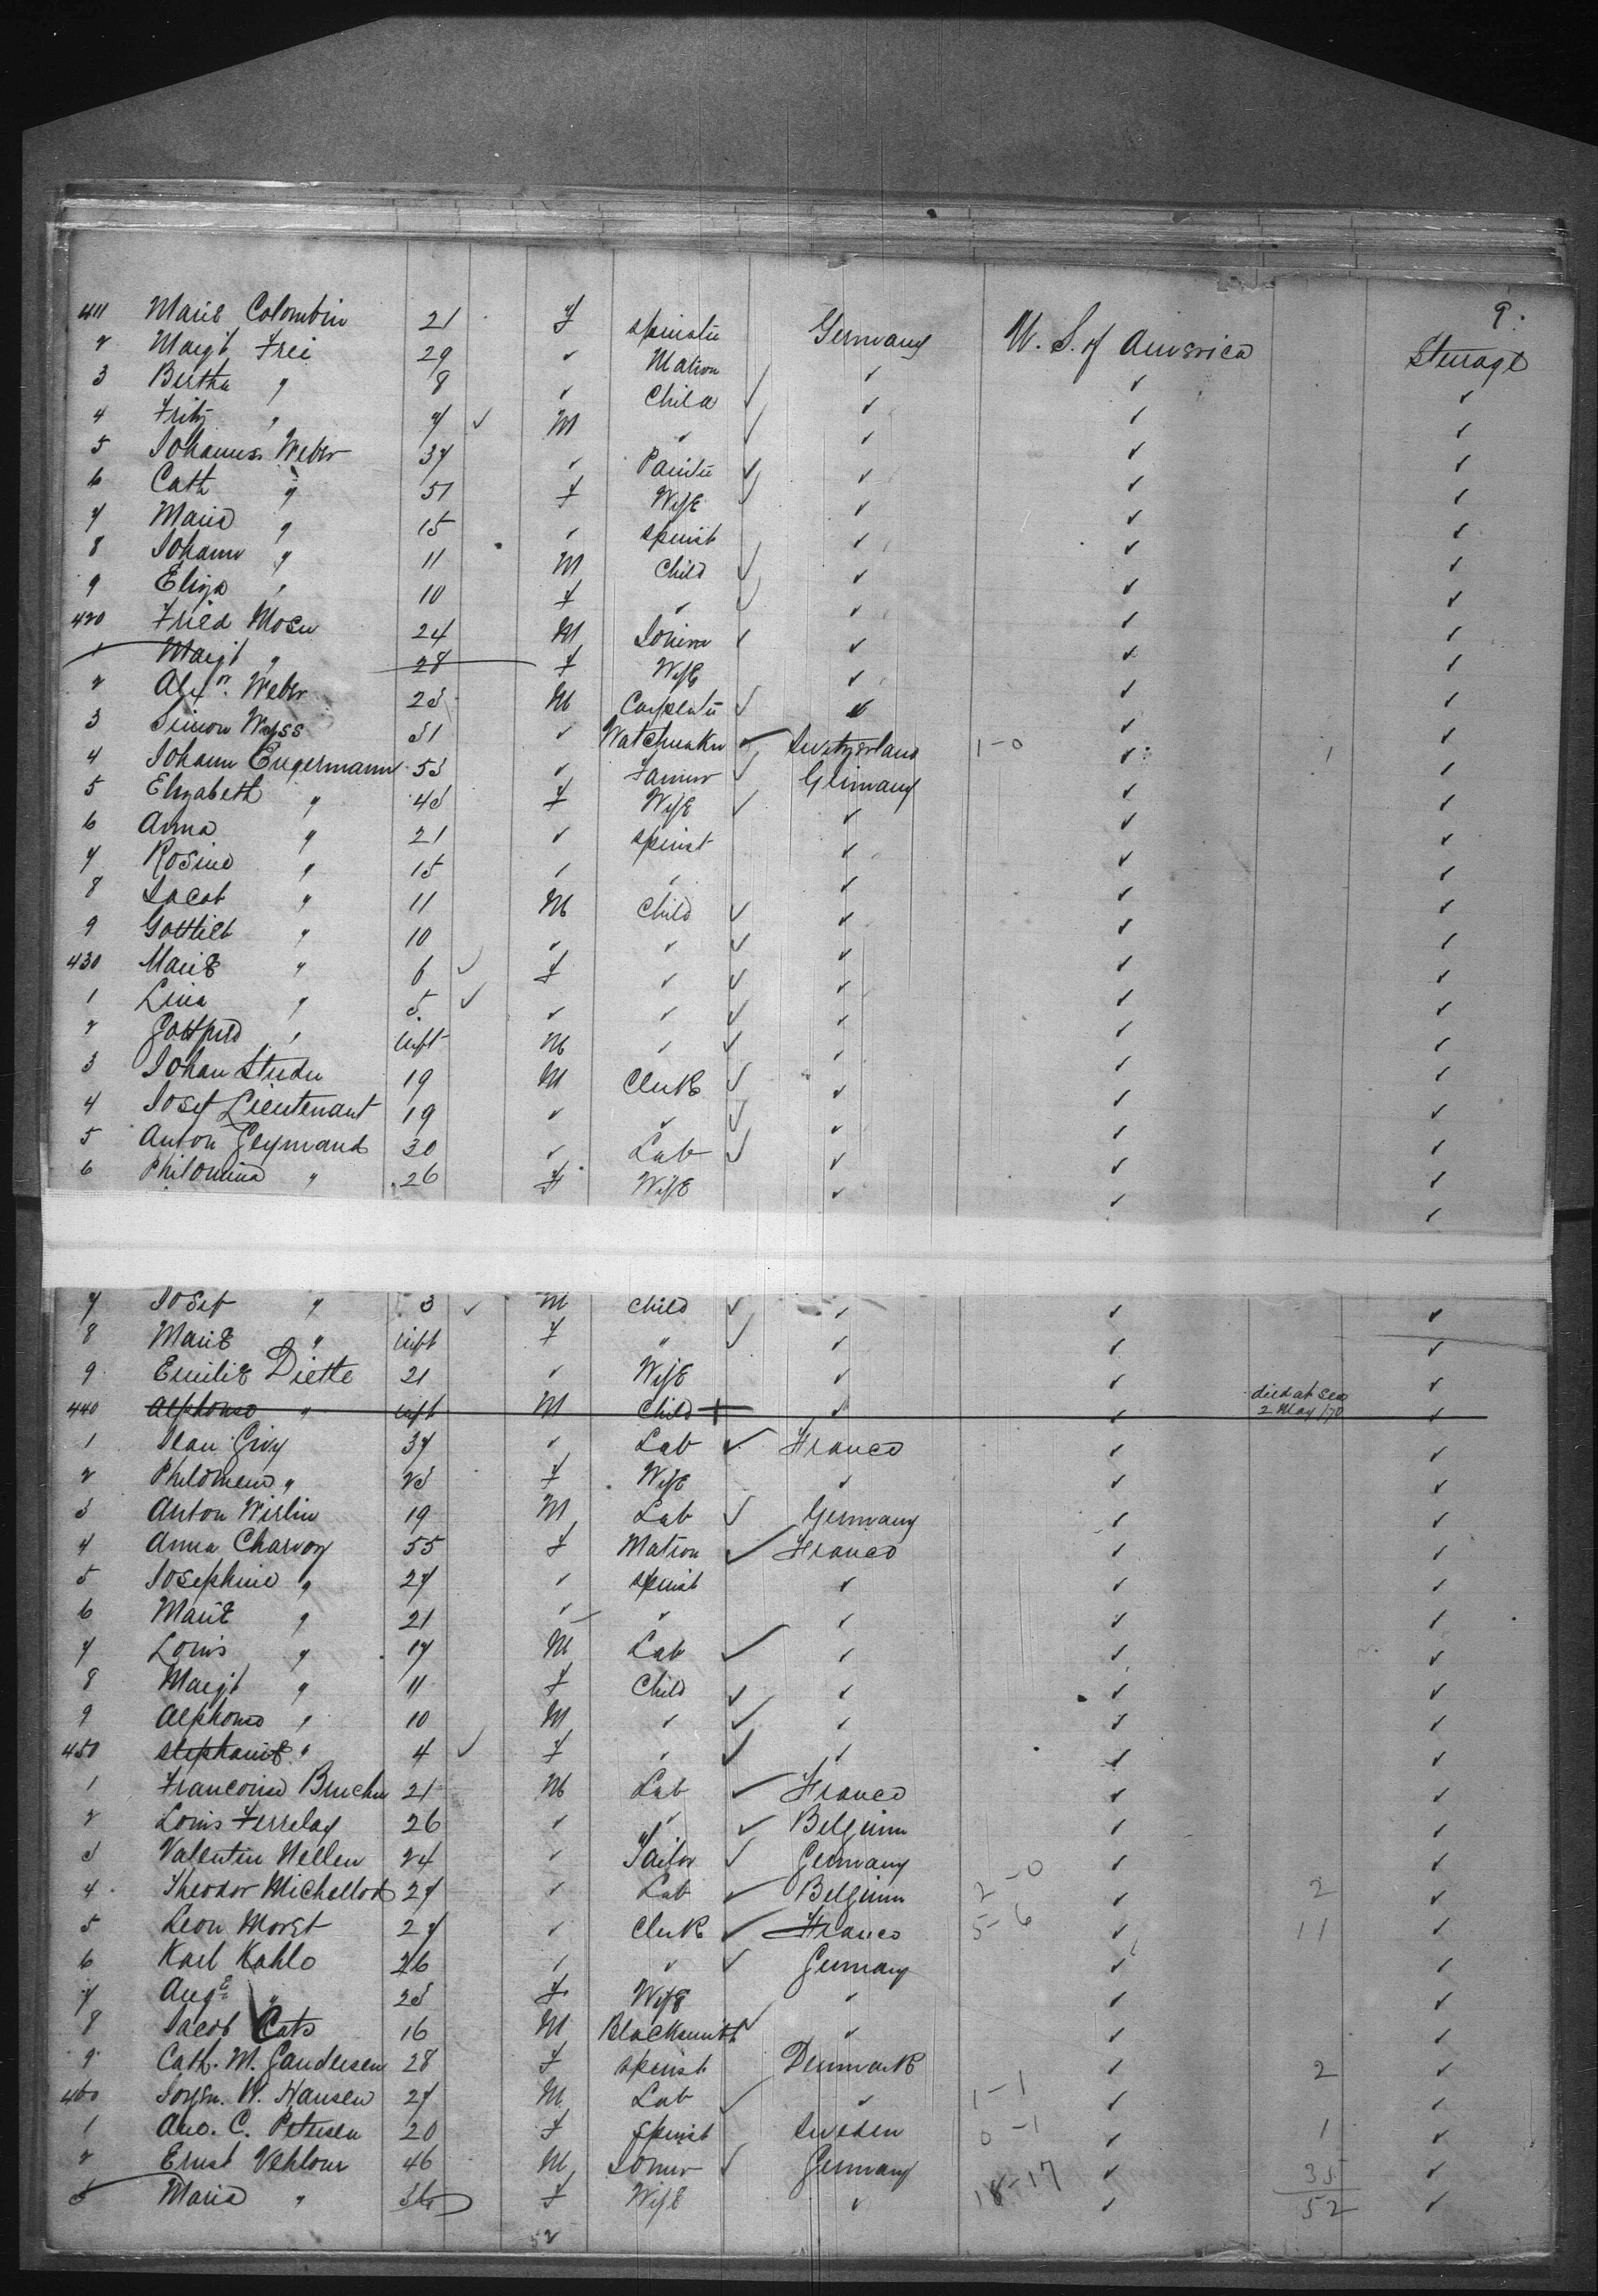 9.
411 Marie Colombin 21 F Spinster Germany U. S. of America Steerage
2 Margt Frei 29 ✓ Matron ✓ ✓ ✓
3 Bertha " 8 ✓ Child ✓ ✓ ✓
4 Fritz " 7 M ✓ ✓ ✓ ✓
5 Johannes Weber 37 ✓ Painter ✓ ✓ ✓
6 Cath " 51 F Wife ✓ ✓ ✓
7 Maria " 15 ✓ Spinst ✓ ✓ ✓
8 Johann " 11 M Child ✓ ✓ ✓
9 Eliza " 10 F ✓ ✓ ✓ ✓
420 Fried Moser 24 M Joiner ✓ ✓ ✓
1 Margt " 28 F Wife ✓ ✓ ✓
2 Alexr. Weber 23 M Carpenter ✓ ✓ ✓
3 Simon Wyss 31 ✓ Watchmaker Switzerland 1-0 ✓ 1 ✓
4 Johann Engermann 53 ✓ Farmer Germany ✓ ✓
5 Elizabeth " 43 F Wife ✓ ✓ ✓
6 Anna " 21 ✓ Spinst ✓ ✓ ✓
7 Rosina " 15 ✓ ✓ ✓ ✓ ✓
8 Jacob " 11 M Child ✓ ✓ ✓
9 Gottlieb " 10 ✓ ✓ ✓ ✓ ✓
430 Marie " 6 F ✓ ✓ ✓ ✓
1 Lina " 5 ✓ ✓ ✓ ✓ ✓
2 Gottfried " inft M ✓ ✓ ✓ ✓
3 Johan Studer 19 M Clerk ✓ ✓ ✓
4 Josef Lieutenant 19 ✓ ✓ ✓ ✓ ✓
5 Anton Geymand 30 ✓ Lab ✓ ✓ ✓
6 Philomina " 26 F Wife ✓ ✓ ✓
7 Josef " 3 M Child ✓ ✓ ✓
8 Marie " inft F " ✓ ✓ ✓
9 Emilie Diette 21 ✓ Wife ✓ ✓ ✓
440 Alphonso " inft M Child + ✓ ✓ died at sea 2 May/70 ✓
1 Jean Givy 37 ✓ Lab France ✓ ✓
2 Philomena " 23 F Wife ✓ ✓ ✓
3 Anton Wirlin 19 M Lab Germany ✓ ✓
4 Anna Charvoy 55 F Matron France ✓ ✓
5 Josephine " 27 ✓ Spinst ✓ ✓ ✓
6 Marie " 21 ✓ ✓ ✓ ✓ ✓
7 Louis " 17 M Lab ✓ ✓ ✓
8 Margt " 11 F Child ✓ ✓ ✓
9 Alphonso " 10 M ✓ ✓ ✓ ✓
450 Stephanie " 4 F ✓ ✓ ✓ ✓
1 Francoise Brucher 21 M Lab France ✓ ✓
2 Louis Ferrelay 26 ✓ ✓ Belgium ✓ ✓
3 Valentin Nellen 24 ✓ Tailor Germany ✓ ✓
4 Theodor Michellod 27 ✓ Lab Belgium 2-0 ✓ 2 ✓
5 Leon Moret 27 ✓ Clerk France 5-6 ✓ 11 ✓
6 Karl Kahlo 26 ✓ ✓ Germany ✓ ✓
7 Auge " 23 F Wife ✓ ✓ ✓
8 Jacob Cats 16 M Blacksmith ✓ ✓ ✓
9 Cath. M. Gandersen 28 F Spinst Denmark ✓ 2 ✓
460 Jorgn. W. Hansen 27 M Lab ✓ 1-1 ✓ ✓
1 Ano. C. Petersen 20 F Spinst Sweden 0-1 ✓ 1 ✓
2 Ernst Vehlow 46 M Joiner Germany ✓ 35 ✓
3 Maria " 36 F Wife ✓ 18-17 ✓ 52 ✓
52